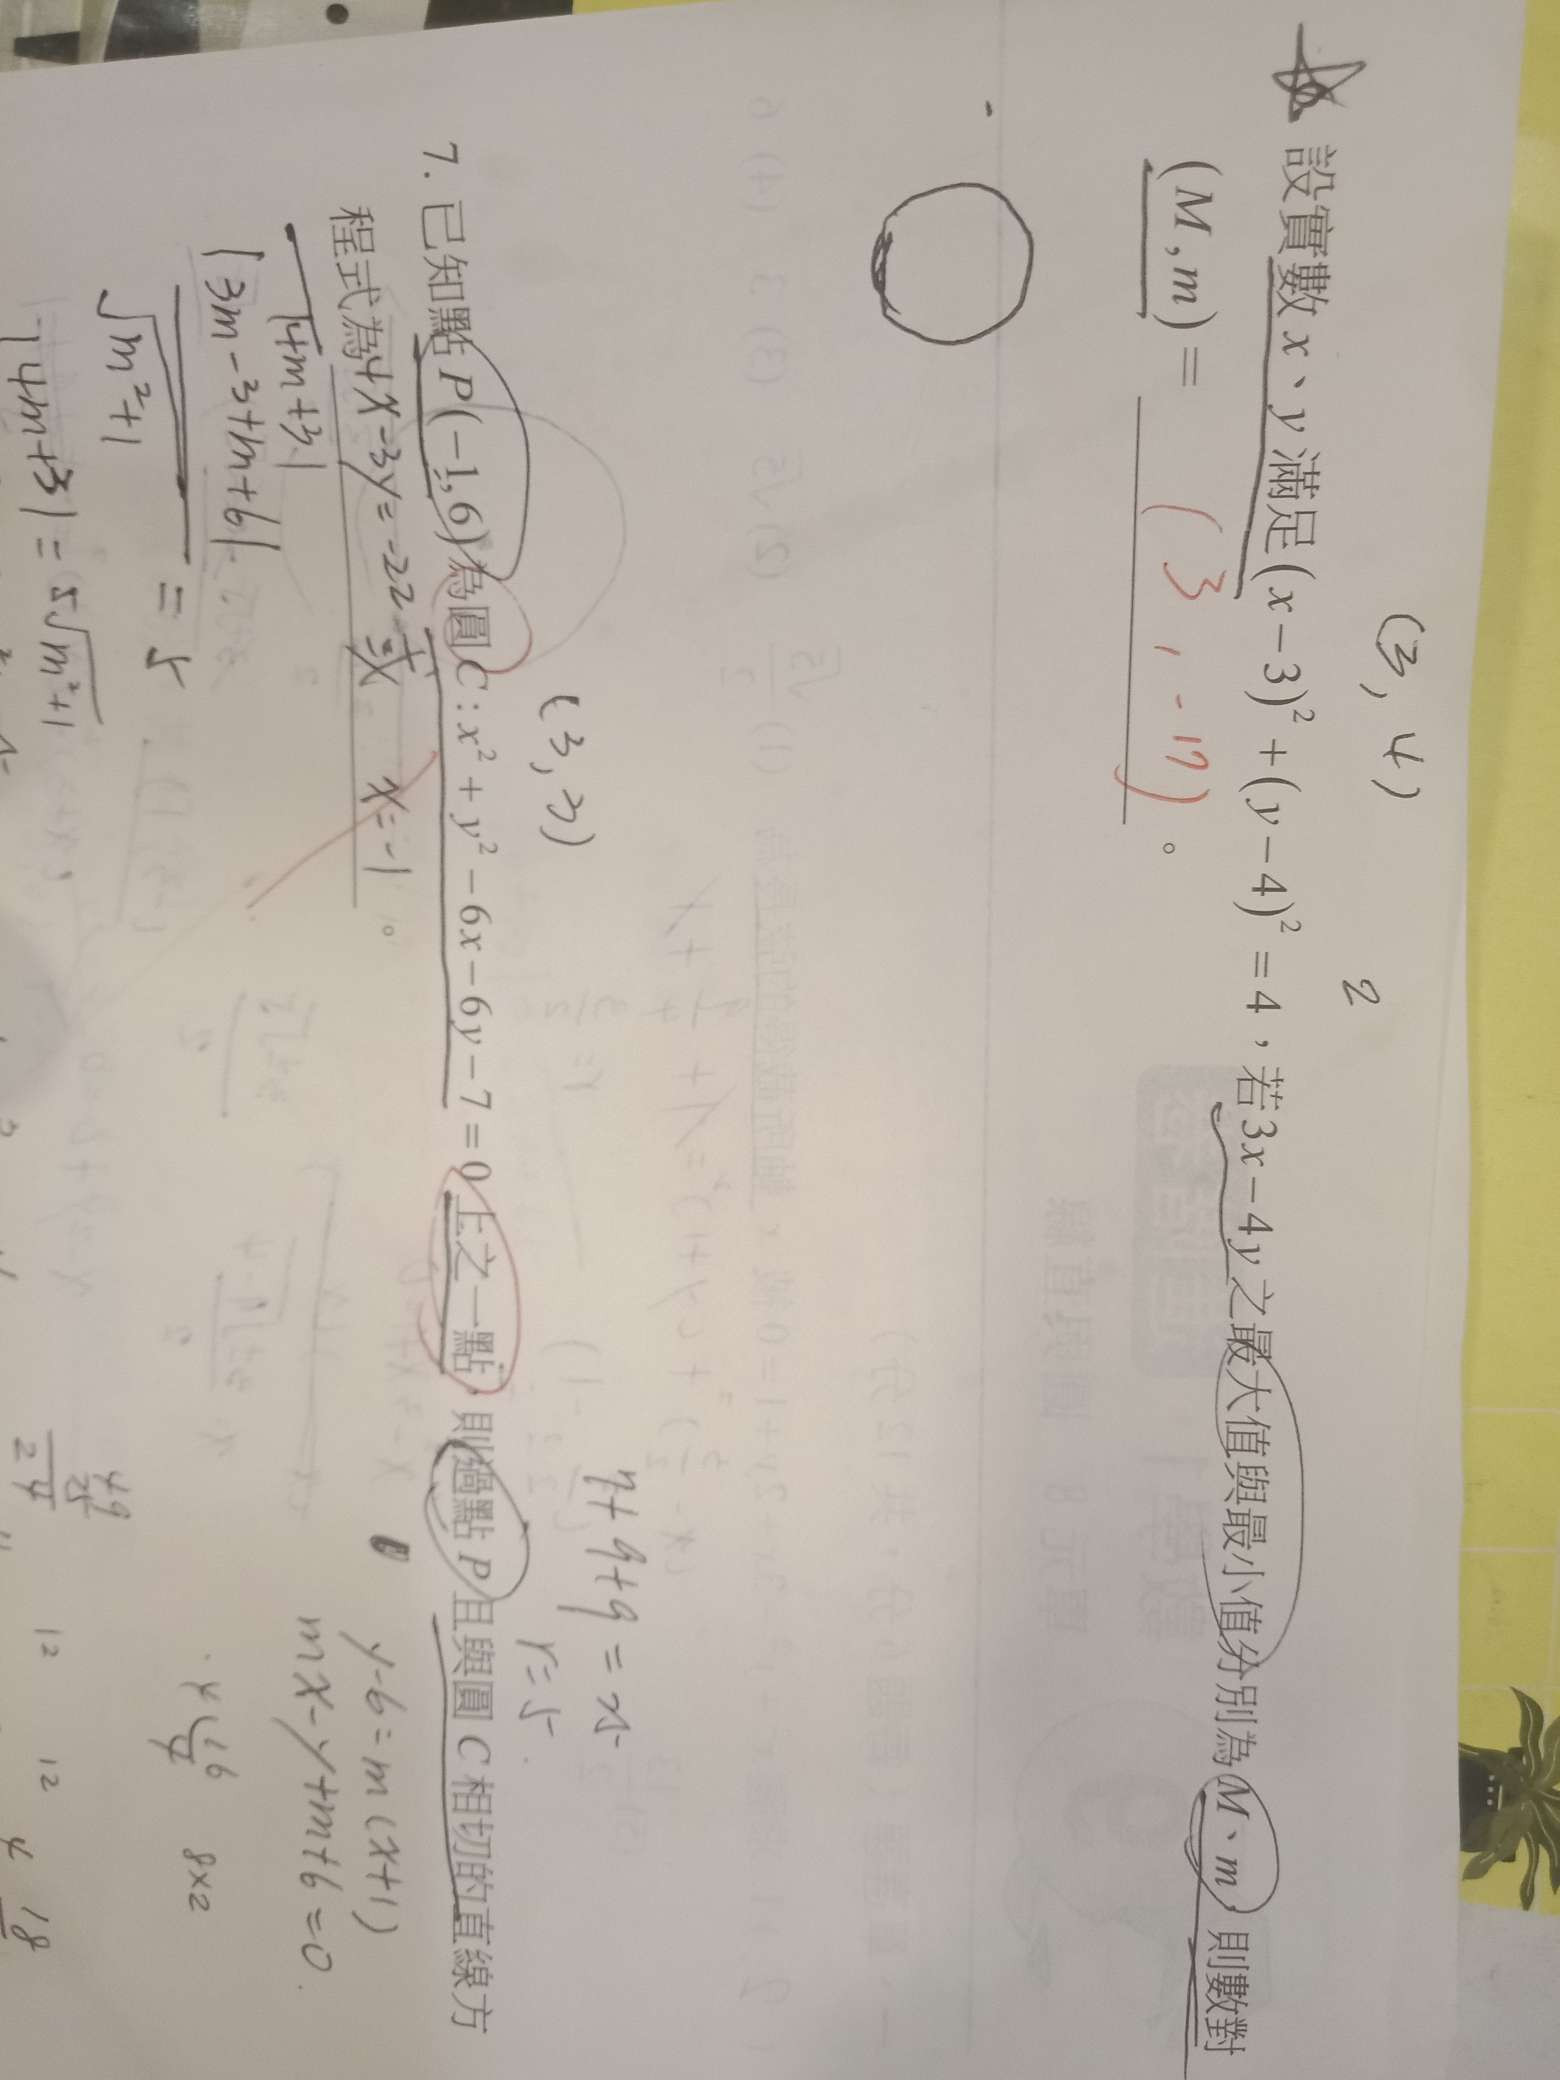 (3, 4)
2
設實數 x、y 滿足 (x−3)² + (y−4)² = 4，若 3x−4y 之最大值與最小值分別為 M、m，則數對
(M, m) = (3, -17)。
(3, 3)
7+9+9=25
r=5
7. 已知點 P(−1,6) 為圓 C : x² + y² − 6x − 6y − 7 = 0 上之一點，則過點 P 且與圓 C 相切的直線方
程式為 4x-3y=-22 或 x=-1。
y-6=m(x+1)
mx-y+m+6=0
|4m+3|
|3m-3+m+6|
√m²+1
=5
8x2
|4m+3|=5√m²+1
12
12